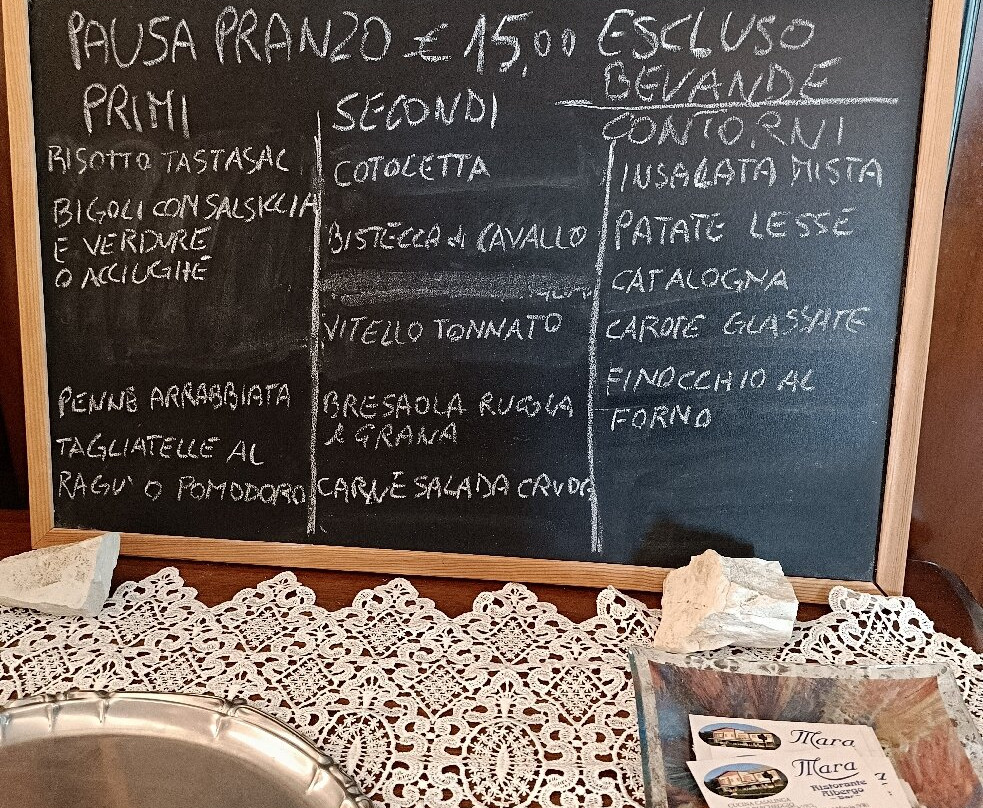 PAUSA PRANZO € 15,00 ESCLUSO
BEVANDE
PRIMI
RISOTTO TASTASAL
BIGOLI CON SALSICCIA
E VERDURE
O ACCIUGHE
PENNE ARRABBIATA
TAGLIATELLE AL
RAGU' O POMODORO
SECONDI
COTOLETTA
BISTECCA di CAVALLO
VITELLO TONNATO
BRESAOLA RUCOLA
e GRANA
CARNE SALADA CRUDA
CONTORNI
INSALATA MISTA
PATATE LESSE
CATALOGNA
CAROTE GLASSATE
FINOCCHIO AL
FORNO
Mara
Mara
Ristorante
Albergo
Bar
CUCINA CASALINGA